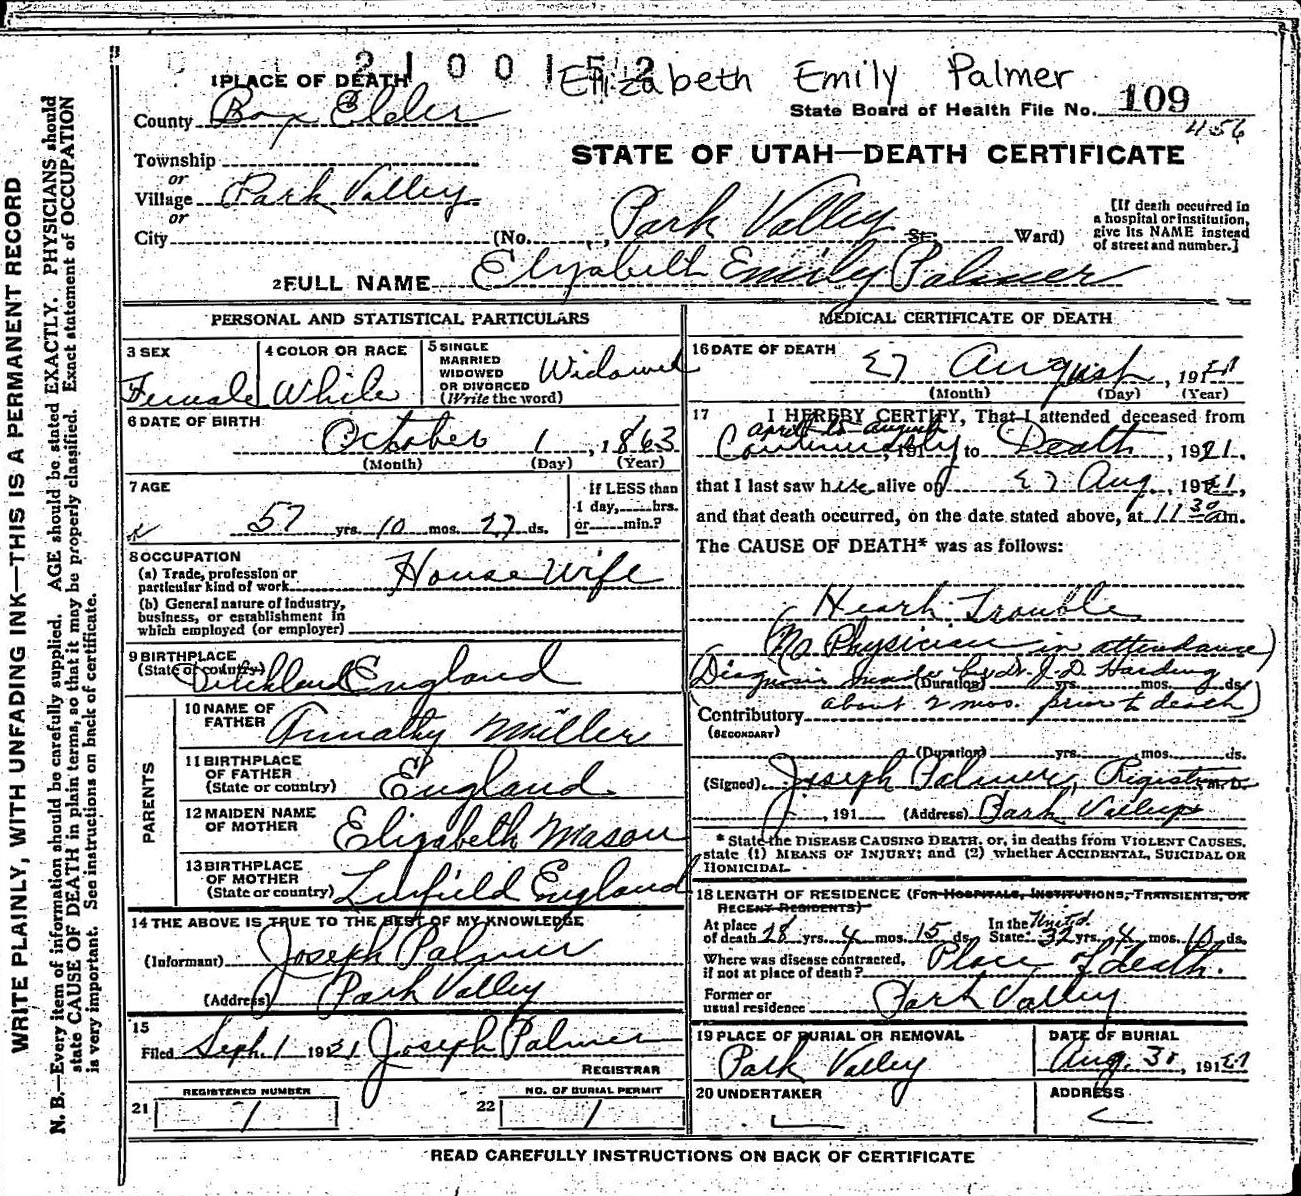 2100152
Elizabeth Emily Palmer
1 PLACE OF DEATH
State Board of Health File No. 109
456
County Box Elder
STATE OF UTAH—DEATH CERTIFICATE
Township
or
Village Park Valley
or
City (No. Park Valley St. Ward)
[If death occurred in
a hospital or institution,
give its NAME instead
of street and number.]
2 FULL NAME Elyzabeth Emily Palmer
PERSONAL AND STATISTICAL PARTICULARS
3 SEX
Female
4 COLOR OR RACE
White
5 SINGLE
MARRIED
WIDOWED
OR DIVORCED
(Write the word)
Widowed
6 DATE OF BIRTH
October 1, 1863
(Month) (Day) (Year)
7 AGE
57 yrs. 10 mos. 27 ds.
If LESS than
1 day, hrs.
or min.?
8 OCCUPATION
(a) Trade, profession or
particular kind of work House Wife
(b) General nature of industry,
business, or establishment in
which employed (or employer)
9 BIRTHPLACE
(State or country)
England
PARENTS
10 NAME OF
FATHER
Miller
11 BIRTHPLACE
OF FATHER
(State or country)
England
12 MAIDEN NAME
OF MOTHER
Elizabeth Mason
13 BIRTHPLACE
OF MOTHER
(State or country)
England
14 THE ABOVE IS TRUE TO THE BEST OF MY KNOWLEDGE
(Informant) Joseph Palmer
(Address) Park Valley
15
Filed Sept. 1 1921 Joseph Palmer
REGISTRAR
21
REGISTERED NUMBER
1
22
NO. OF BURIAL PERMIT
1
MEDICAL CERTIFICATE OF DEATH
16 DATE OF DEATH
27 August, 1921
(Month) (Day) (Year)
17 I HEREBY CERTIFY, That I attended deceased from
april to august
Continuously, 191 to Death, 1921,
that I last saw her alive on 27 Aug., 1921,
and that death occurred, on the date stated above, at 11 30 am.
The CAUSE OF DEATH* was as follows:
Heart Trouble
(No Physician in attendance)
(Diagnosis made by Dr. J. D. Harding
(Duration) yrs. mos. ds.
about 2 mos. prior to death)
Contributory
(SECONDARY)
(Duration) yrs. mos. ds.
(Signed) Joseph Palmer, Registrar M. D.
, 191 (Address) Park Valley
* State the DISEASE CAUSING DEATH, or, in deaths from VIOLENT CAUSES,
state (1) MEANS OF INJURY; and (2) whether ACCIDENTAL, SUICIDAL OR
HOMICIDAL.
18 LENGTH OF RESIDENCE (FOR HOSPITALS, INSTITUTIONS, TRANSIENTS, OR
RECENT RESIDENTS)
At place
of death 28 yrs. 4 mos. 15 ds.
In the United
State 32 yrs. 4 mos. 10 ds.
Where was disease contracted,
if not at place of death? Place of death.
Former or
usual residence Park Valley
19 PLACE OF BURIAL OR REMOVAL
Park Valley
DATE OF BURIAL
Aug. 30, 1921
20 UNDERTAKER
ADDRESS
READ CAREFULLY INSTRUCTIONS ON BACK OF CERTIFICATE
WRITE PLAINLY, WITH UNFADING INK—THIS IS A PERMANENT RECORD
N. B.—Every item of information should be carefully supplied. AGE should be stated EXACTLY. PHYSICIANS should
state CAUSE OF DEATH in plain terms, so that it may be properly classified. Exact statement of OCCUPATION
is very important. See instructions on back of certificate.